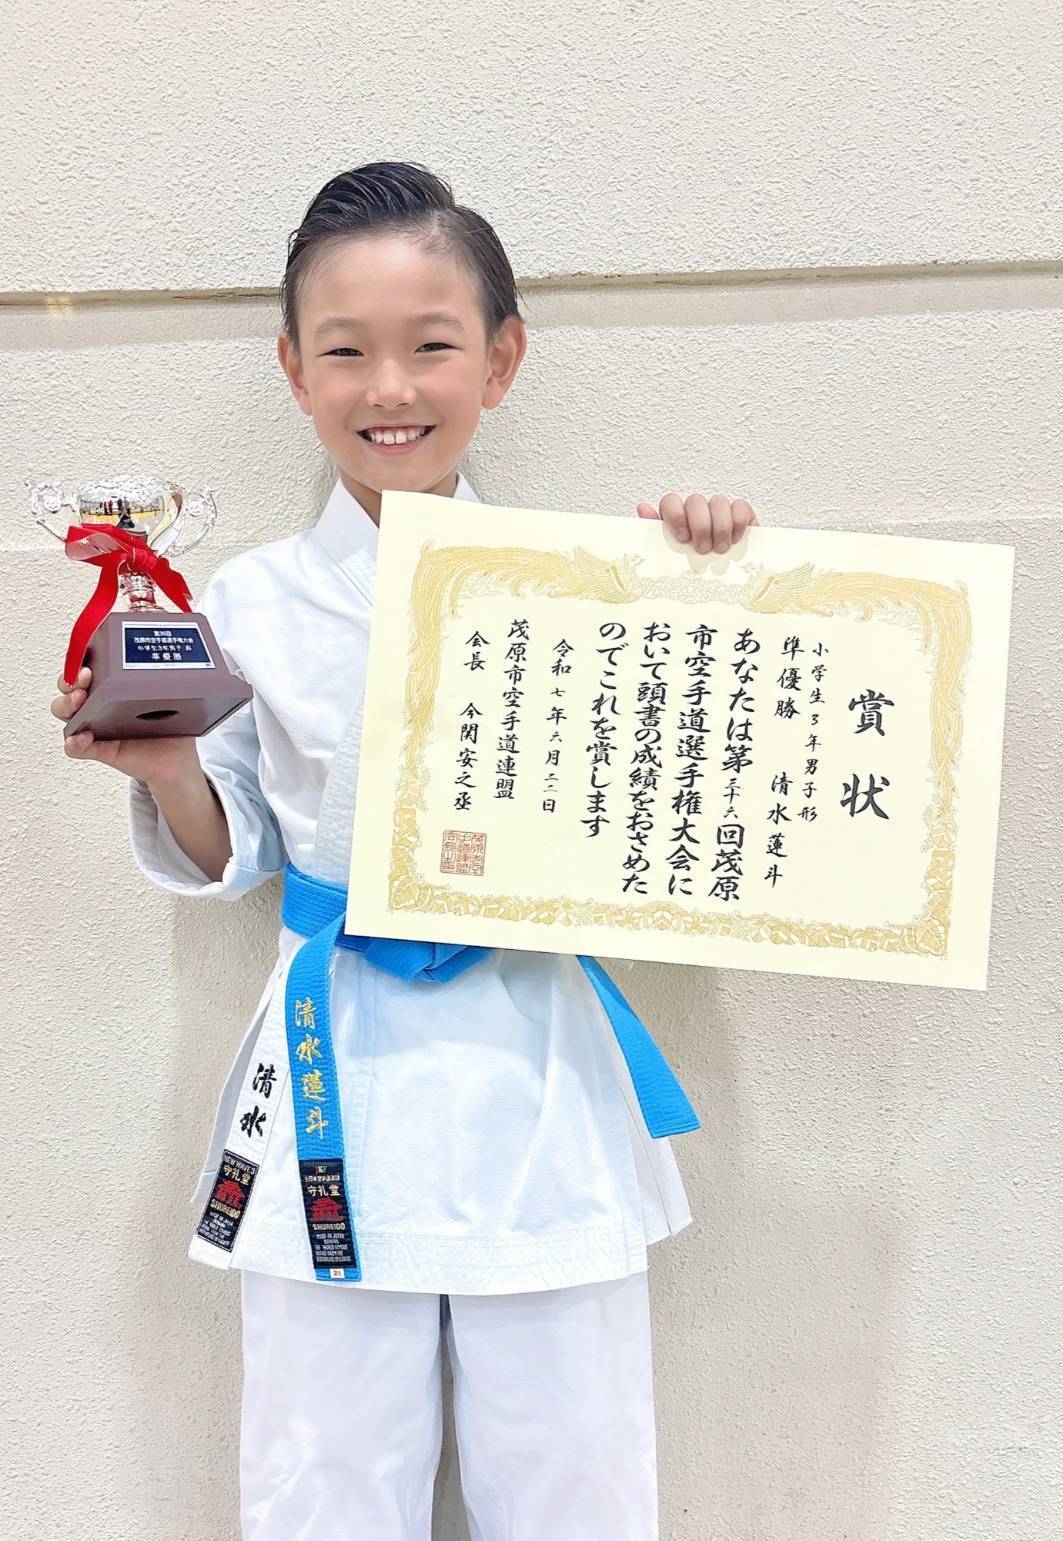 賞状
小学生3年男子形
準優勝 清水蓮斗
あなたは第三十六回茂原
市空手道選手権大会に
おいて頭書の成績をおさめた
のでこれを賞します
令和七年六月二二日
茂原市空手道連盟
会長 今関安之丞
第36回
茂原市空手道選手権大会
小学生3年男子 形
準優勝
清水蓮斗
清水
NEW WAVE 3
守礼堂
SHUREIDO
守礼堂
SHUREIDO
MADE IN JAPAN